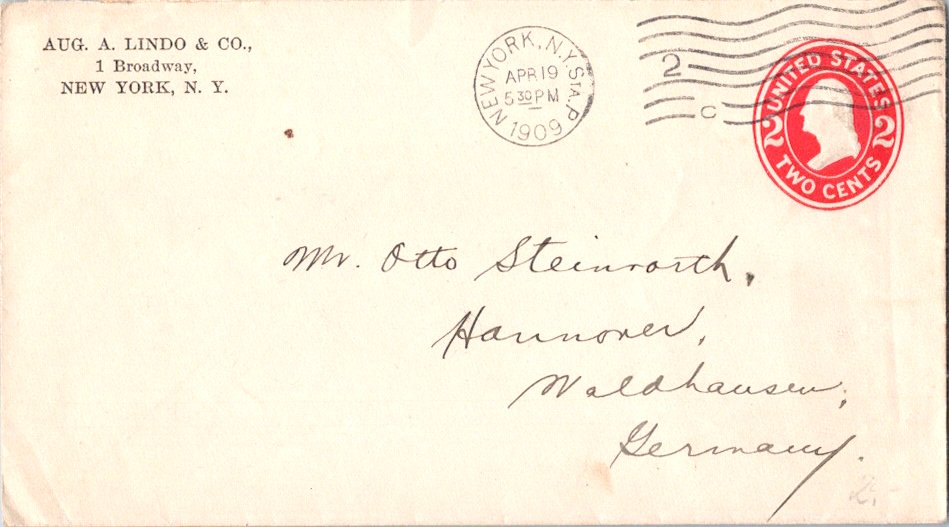 AUG. A. LINDO & CO.,
1 Broadway,
NEW YORK, N. Y.
NEW YORK, N.Y. STA. P
APR 19
5 30 PM
1909
2
C
UNITED STATES
2 2
TWO CENTS
Mr. Otto Steinworth,
Hannover,
Waldhausen,
Germany.
2.-